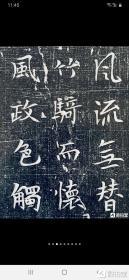 11:45
風流無替
竹騎而懷
風政觸